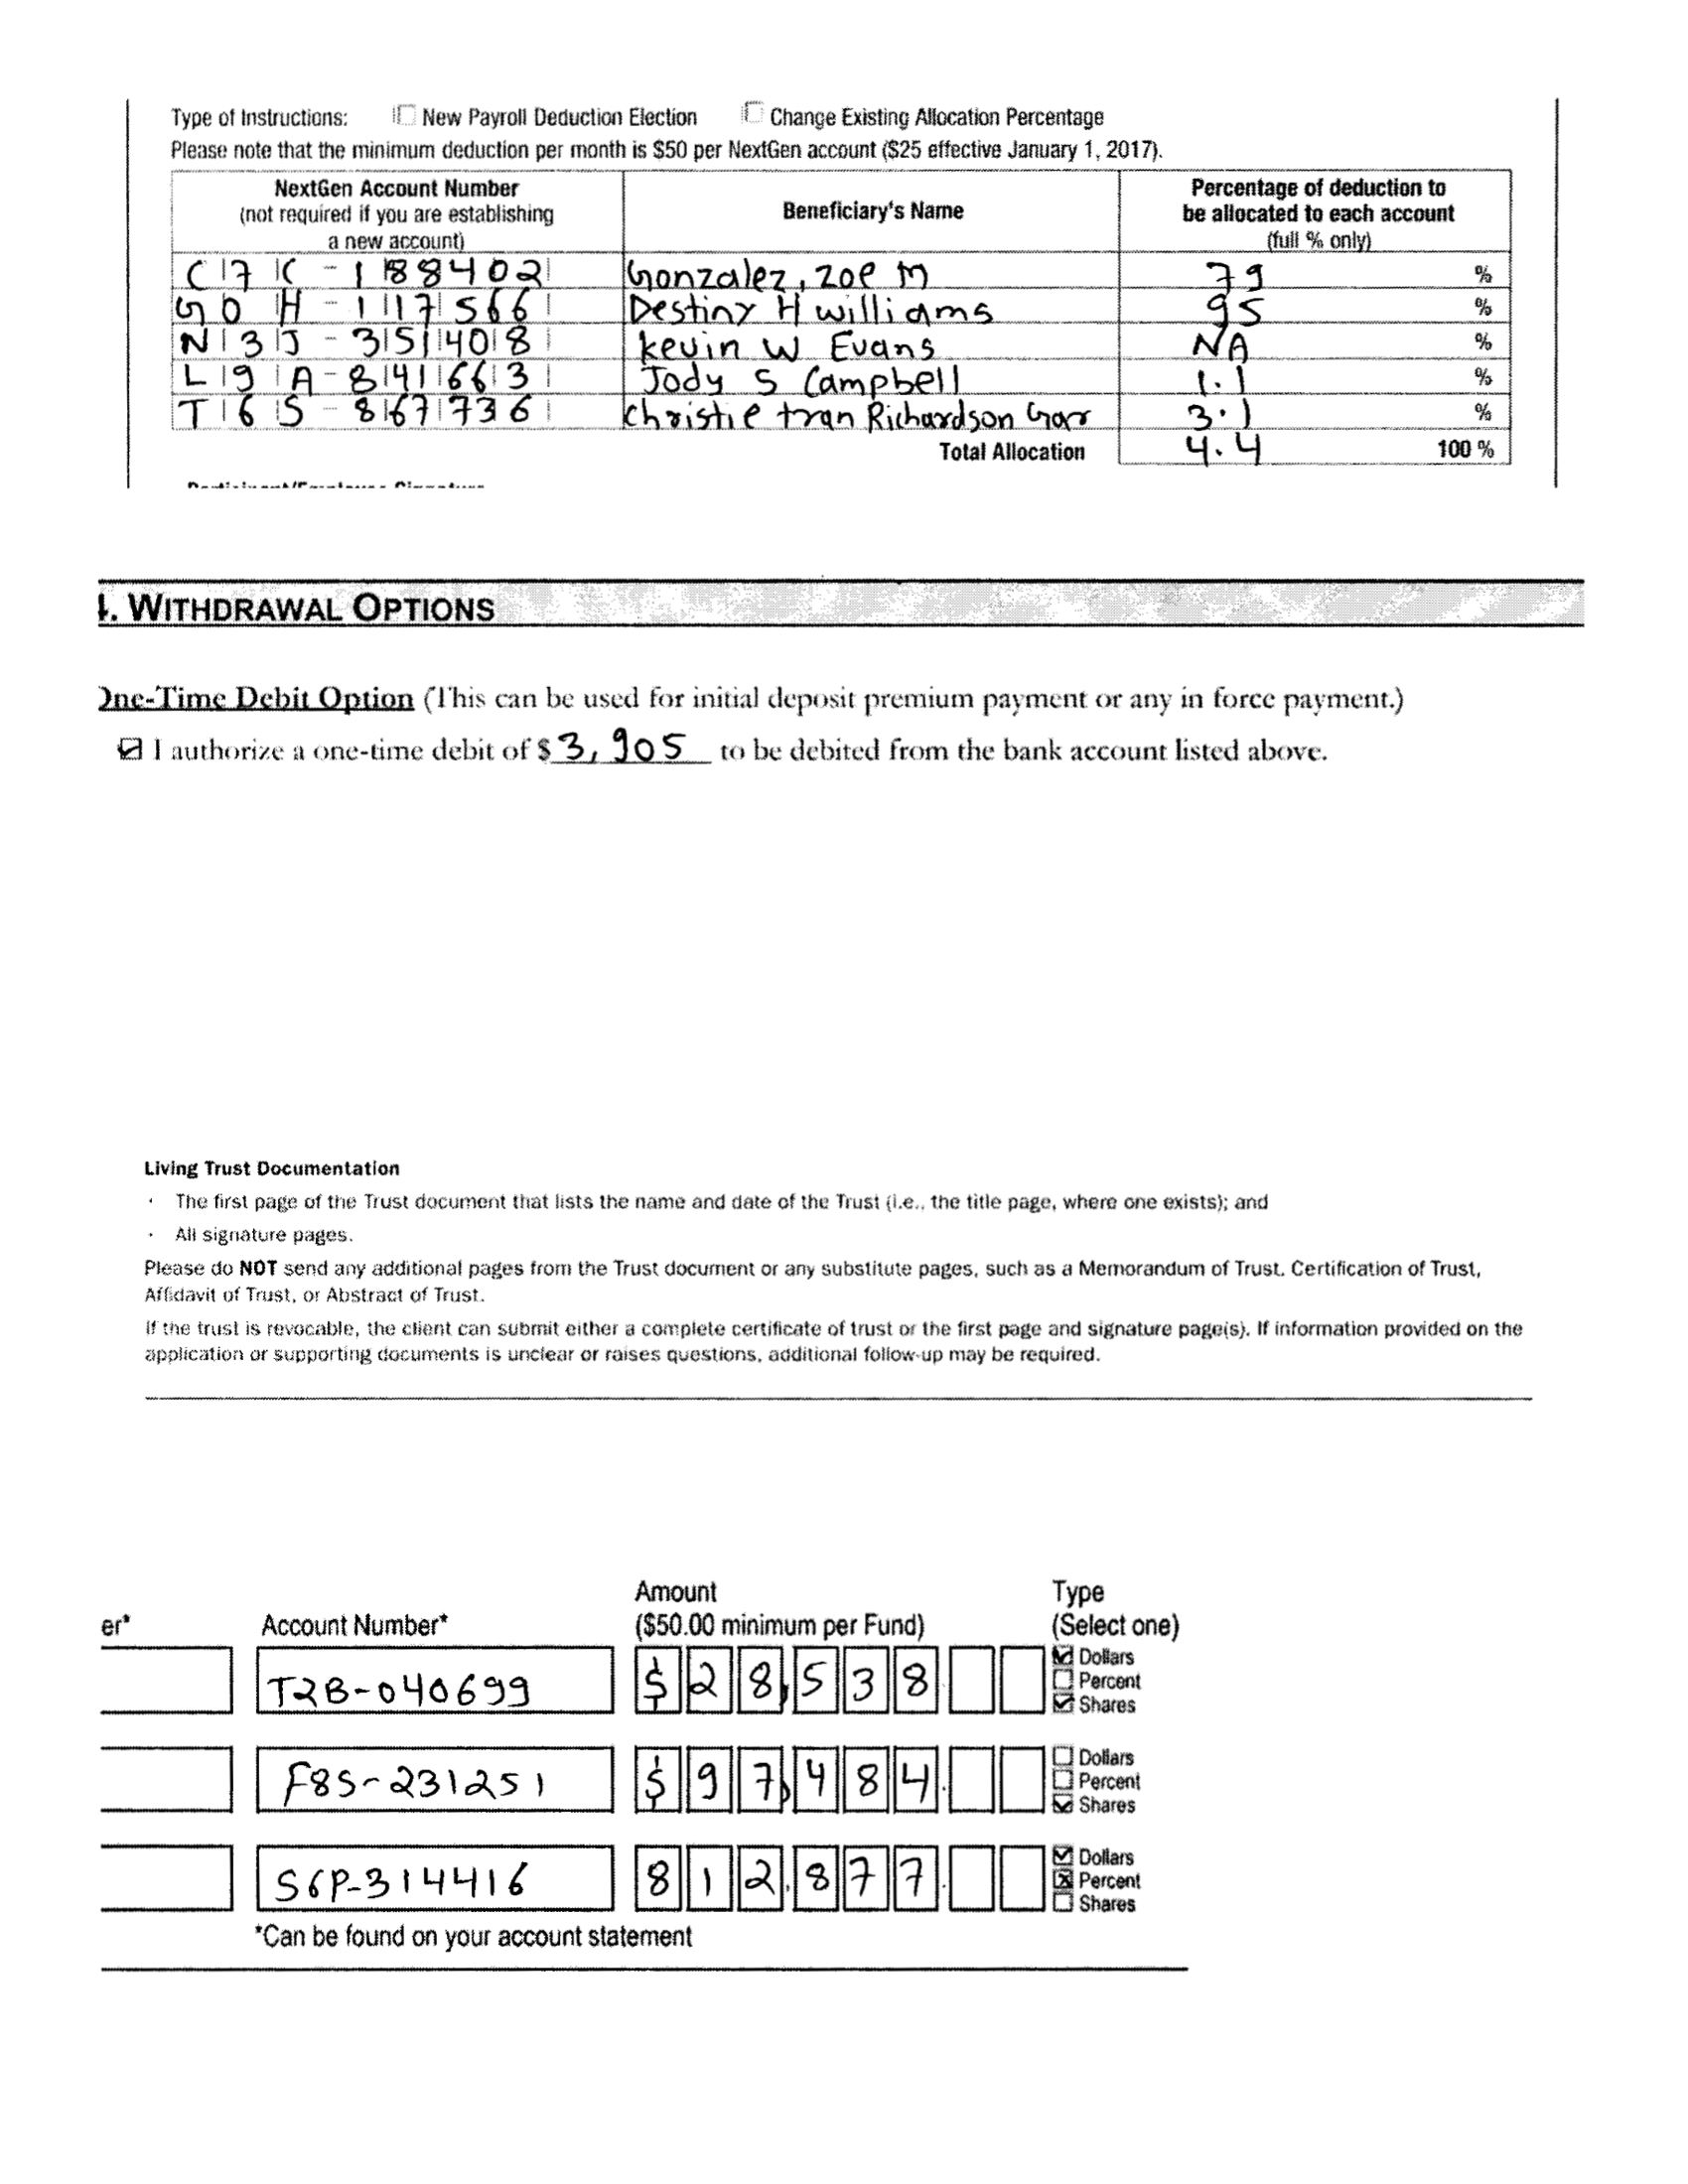 Type of Instructions: ☐ New Payroll Deduction Election ☐ Change Existing Allocation Percentage
Please note that the minimum deduction per month is $50 per NextGen account ($25 effective January 1, 2017).
NextGen Account Number
(not required if you are establishing
a new account)
Beneficiary's Name
Percentage of deduction to
be allocated to each account
(full % only)
C7C-188402 Gonzalez, Zoe M 79 %
G0H-117566 Destiny H Williams 95 %
N3J-351408 Kevin W Evans NA %
L9A-841663 Jody S Campbell 1.1 %
T6S-867736 Christie tran Richardson Garr 3.1 %
Total Allocation 4.4 100 %
Participant/Employee Signature
4. WITHDRAWAL OPTIONS
One-Time Debit Option (This can be used for initial deposit premium payment or any in force payment.)
☑ I authorize a one-time debit of $ 3,905 to be debited from the bank account listed above.
Living Trust Documentation
· The first page of the Trust document that lists the name and date of the Trust (i.e., the title page, where one exists); and
· All signature pages.
Please do NOT send any additional pages from the Trust document or any substitute pages, such as a Memorandum of Trust. Certification of Trust,
Affidavit of Trust, or Abstract of Trust.
If the trust is revocable, the client can submit either a complete certificate of trust or the first page and signature page(s). If information provided on the
application or supporting documents is unclear or raises questions, additional follow-up may be required.
er* Account Number*
Amount
($50.00 minimum per Fund)
Type
(Select one)
T2B-040699 $28,538. ☑ Dollars
☐ Percent
☑ Shares
F8S-231251 $97,484. ☐ Dollars
☐ Percent
☑ Shares
S6P-314416 812,877. ☑ Dollars
☒ Percent
☐ Shares
*Can be found on your account statement